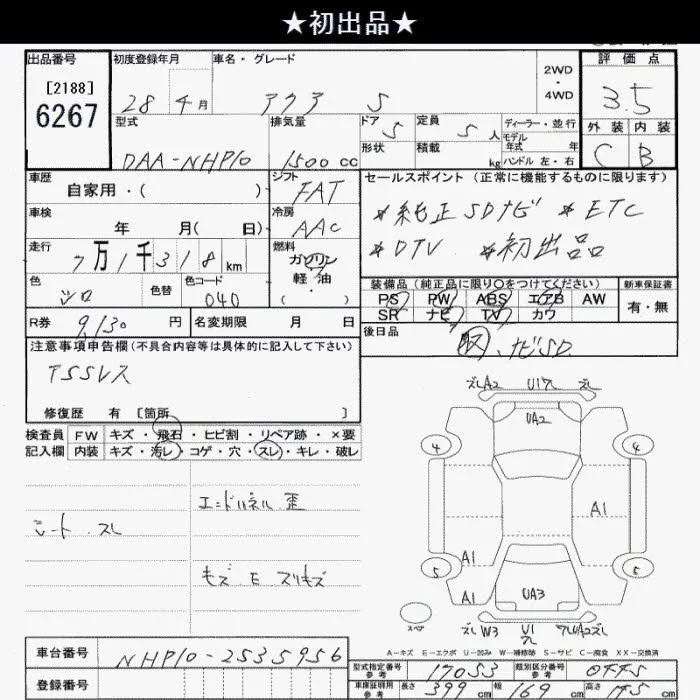 ★初出品★
出品番号 初度登録年月 車名・グレード 2WD・4WD 評価点
[2188]
6267 28年4月 アクア S 3.5
型式 排気量 ドア 5 定員 5人 ディーラー・並行
形状 積載 kg モデル年式 年 ハンドル 左・右 外装 内装
DAA-NHP10 1500cc C B
車歴 自家用・( ) シフト FAT
セールスポイント(正常に機能するものに限ります)
*純正SDナビ *ETC
*DTV *初出品
車検 年 月( 日) 冷房 AAC
走行 7万1千318km 燃料 ガソリン 軽・油 ( ・ )
色 シロ 色替 色コード 040
装備品(純正品に限り○をつけてください) 新車保証書
PS PW ABS エアB AW 有・無
SR ナビ TV カワ
R券 9,130円 名変期限 月 日
後日品 取、ナビSD
注意事項申告欄(不具合内容等は具体的に記入して下さい)
TSSレス
修復歴 有 [箇所 ]
検査員 FW キズ・飛石・ヒビ割・リペア跡・×要
記入欄 内装 キズ・汚レ・コゲ・穴・スレ・キレ・破レ
シート スレ
キズ E スリキズ
ズレA2 U1ワレ ズレ
UA2
4 4
A1
A1
5 5
A1
UA3
スペア
ズレW3 U1ワレ ワレUA2ズレ
A-キズ E-エクボ U-凹み W-補修跡 S-サビ C-腐食 XX-交換済
車台番号 NHP10-2535956
登録番号
型式指定番号 参考 17053 類別区分番号 参考
車庫証明用 参考 長さ 399cm 幅 169cm 高さ cm